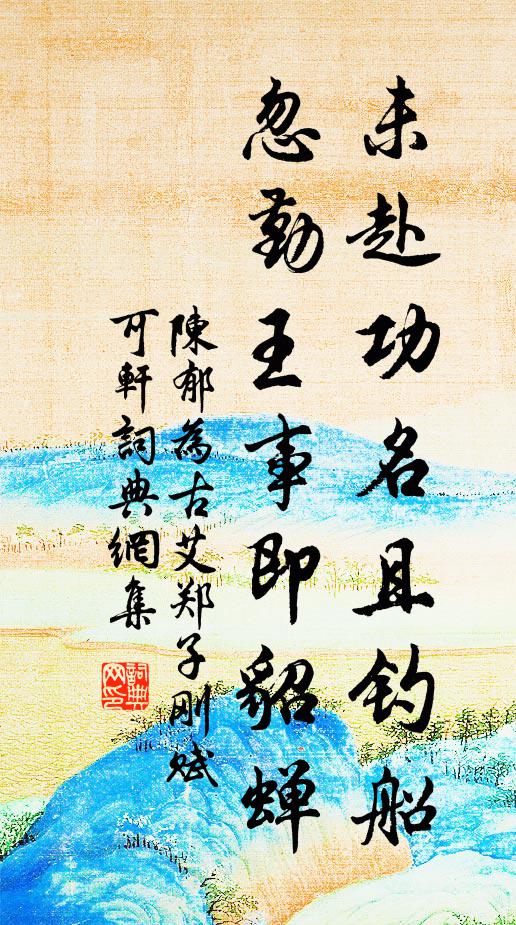 未赴功名且钓船
忽勤王事即貂蝉
陳郁為古艾郑子刚赋
可軒詞典網集
詞典網印